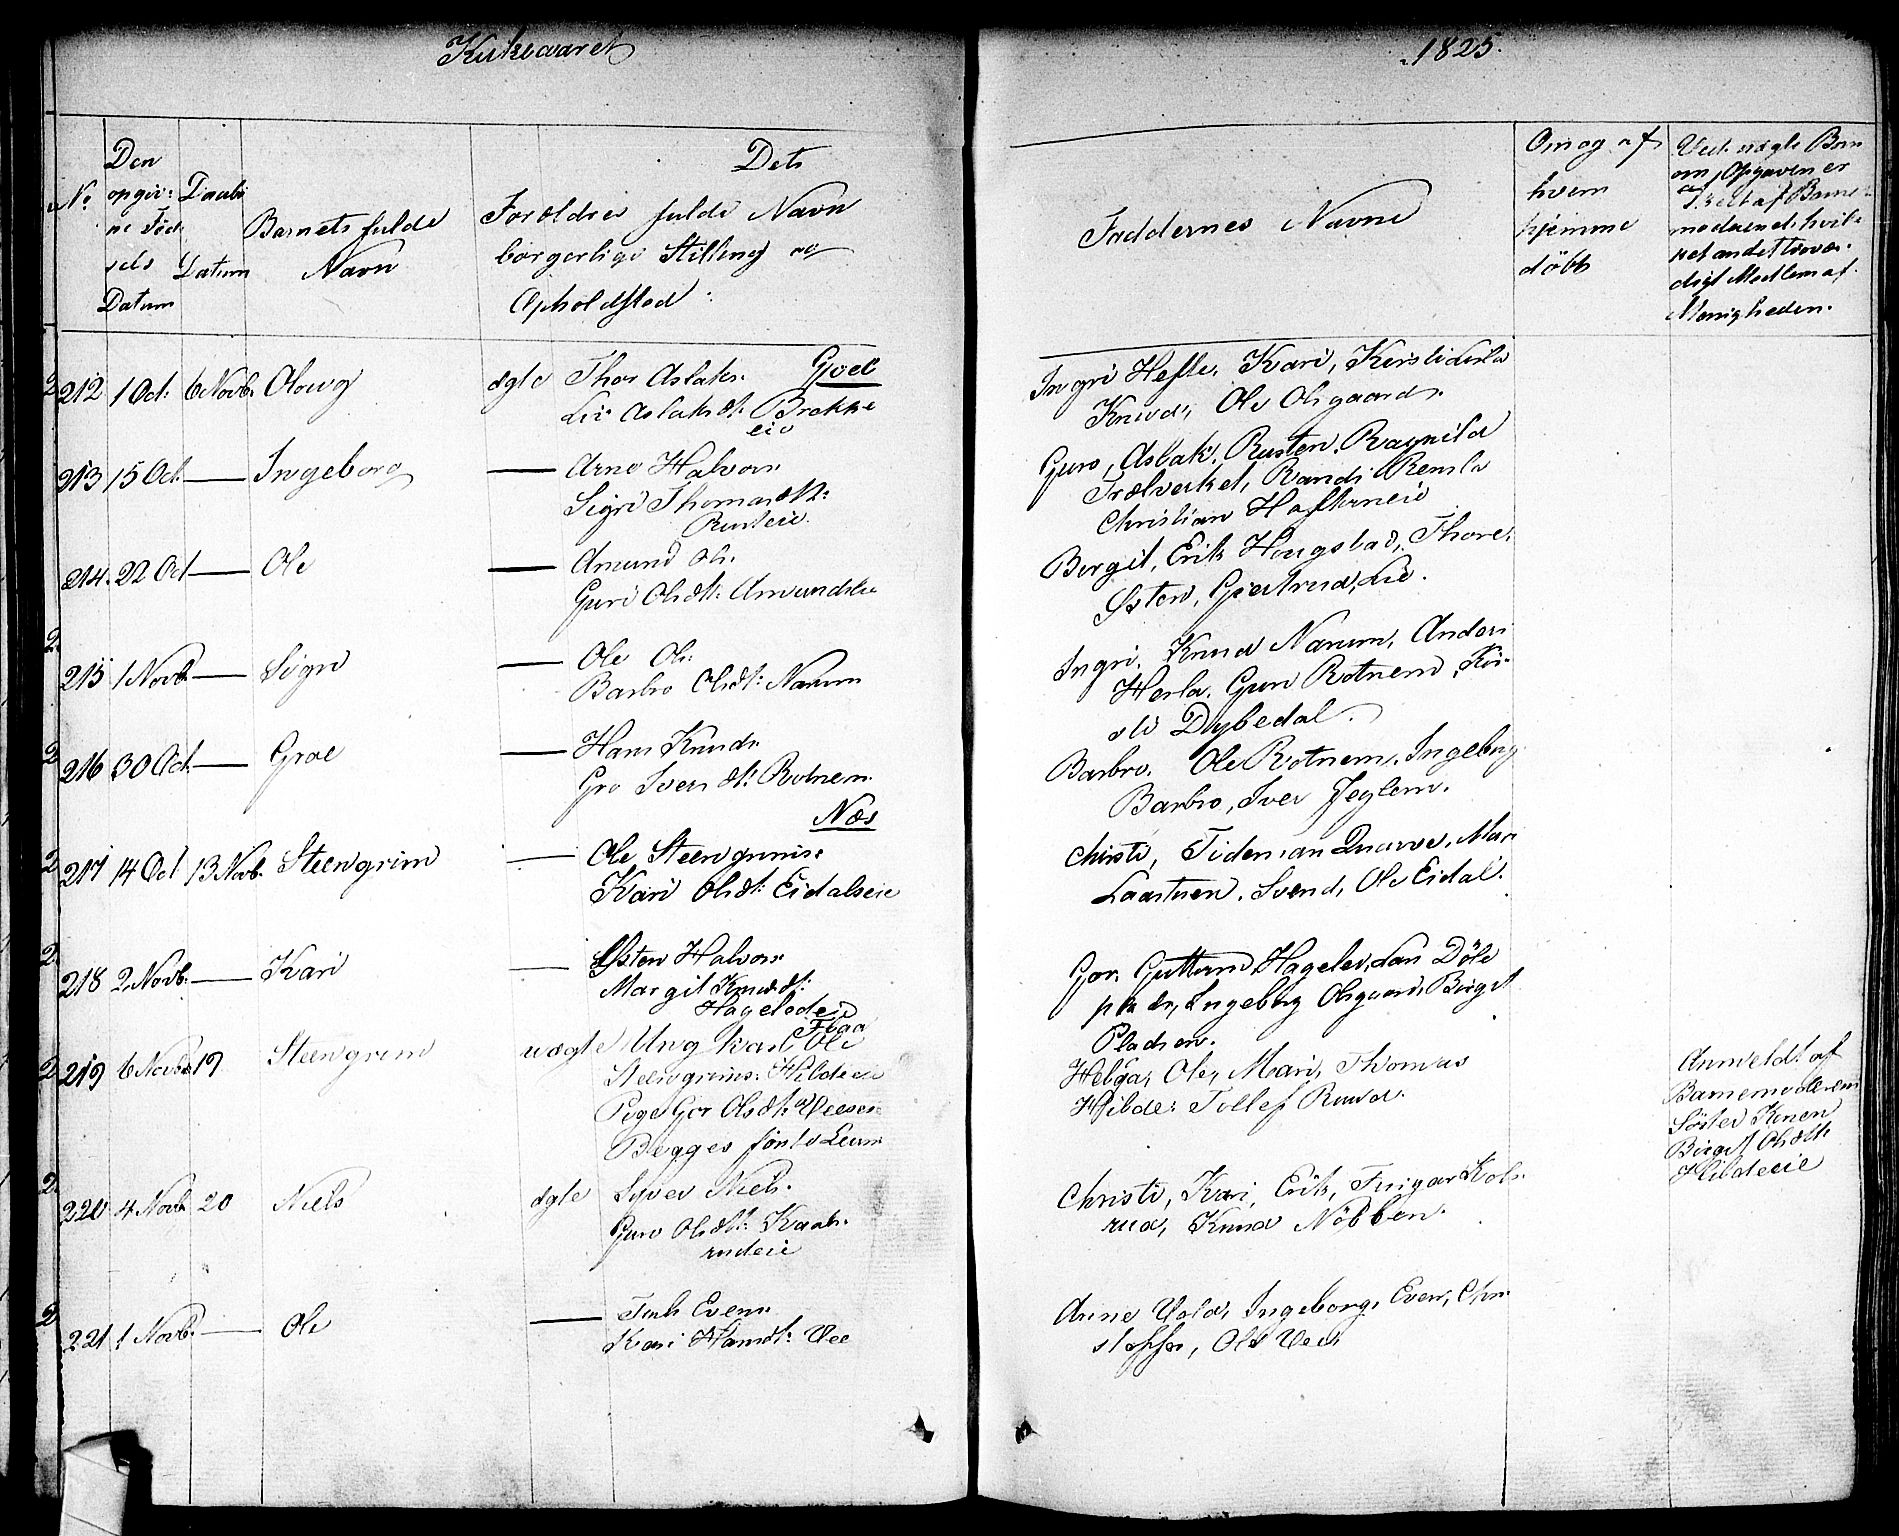 Kirkeaaret
1825.
No
Den opgiv: ne Fød sels Datum
Daabs Datum
Barnets fulde Navn
Dets
Forældres fulde Navn
borgerlige Stilling og
Opholdsted:
Faddernes Navne
Om og af
hvem
hjemme
döbt
Ved uægte Børn
om Opgaven er
skeet af Barne-
moderen el: hvil-
ket andet trovær-
digt Medlem af
Menigheden.
212 1 Oct: 6 Novb. Oloug ægte Thor Aslaks: Goel
Liv Aslaksdt: Brekke
eie
Ingri Hefte, Kari,
Knud, Ole Olsgaard.
213 15 Oct. — Ingeborg — Arne Halvors:
Sigri Thomasdt:
Rusteie
Guro, Aslak, Rusten, Ragnild
Trælverket, Randi Remsla
Christian
214. 22 Oct — Ole — Amund Ols.
Guri Olsdt: Amundsla
Bergit, Erik Hougstad, Thore,
Østen, Giertrud, Lie.
215 1 Novb. — Sigri — Ole Ols:
Barbro Olsdt: Narum
Ingri, Knud Narum, Anders
Herla, Guri Rotnem, Kir-
sti Dybedal.
216 30 Oct. — Groe — Hans Knuds:
Gro Iversdt: Rotnem.
Barbro, Ole Rotnem, Ingeborg
Barbro, Iver Jeglem.
Næs
217 14 Oct 13 Novb. Steengrim — Ole Steengrims:
Kari Olsdt: Eidalseie
Christi, Tideman Qvarve, Mari
Laastuen, Svend, Ole Eidal.
218 2 Novb. — Kari — Østen Halvors:
Margit Knudsdt:
Gor, Guttorm
Ingeborg Olsgaard, Birgit
Pladsen.
Flaa
219 6 Novb. 19 Steengrim uægte Ung karl Ole
Steengrims: Hildeeie
Pige Gor Olsdt:
Begges första Leierm
Helga, Ole, Mari, Thomas
Hilde: Tollef Ruud.
Anmeldt af
Barnemoderens
Söster Konen
Birgit Olsdtr
Hildeeie
220 4 Novb 20 Niels ægte Syver Niels.
Guro Olsdt:
rudeie
Christi, Kari, Erik,
rud, Knud Nöbben.
221 1 Novb. — Ole — Evens:
Kari Hansdt: Vee
Anne Vold, Ingeborg, Even, Chri
stoffer, Ole Vee